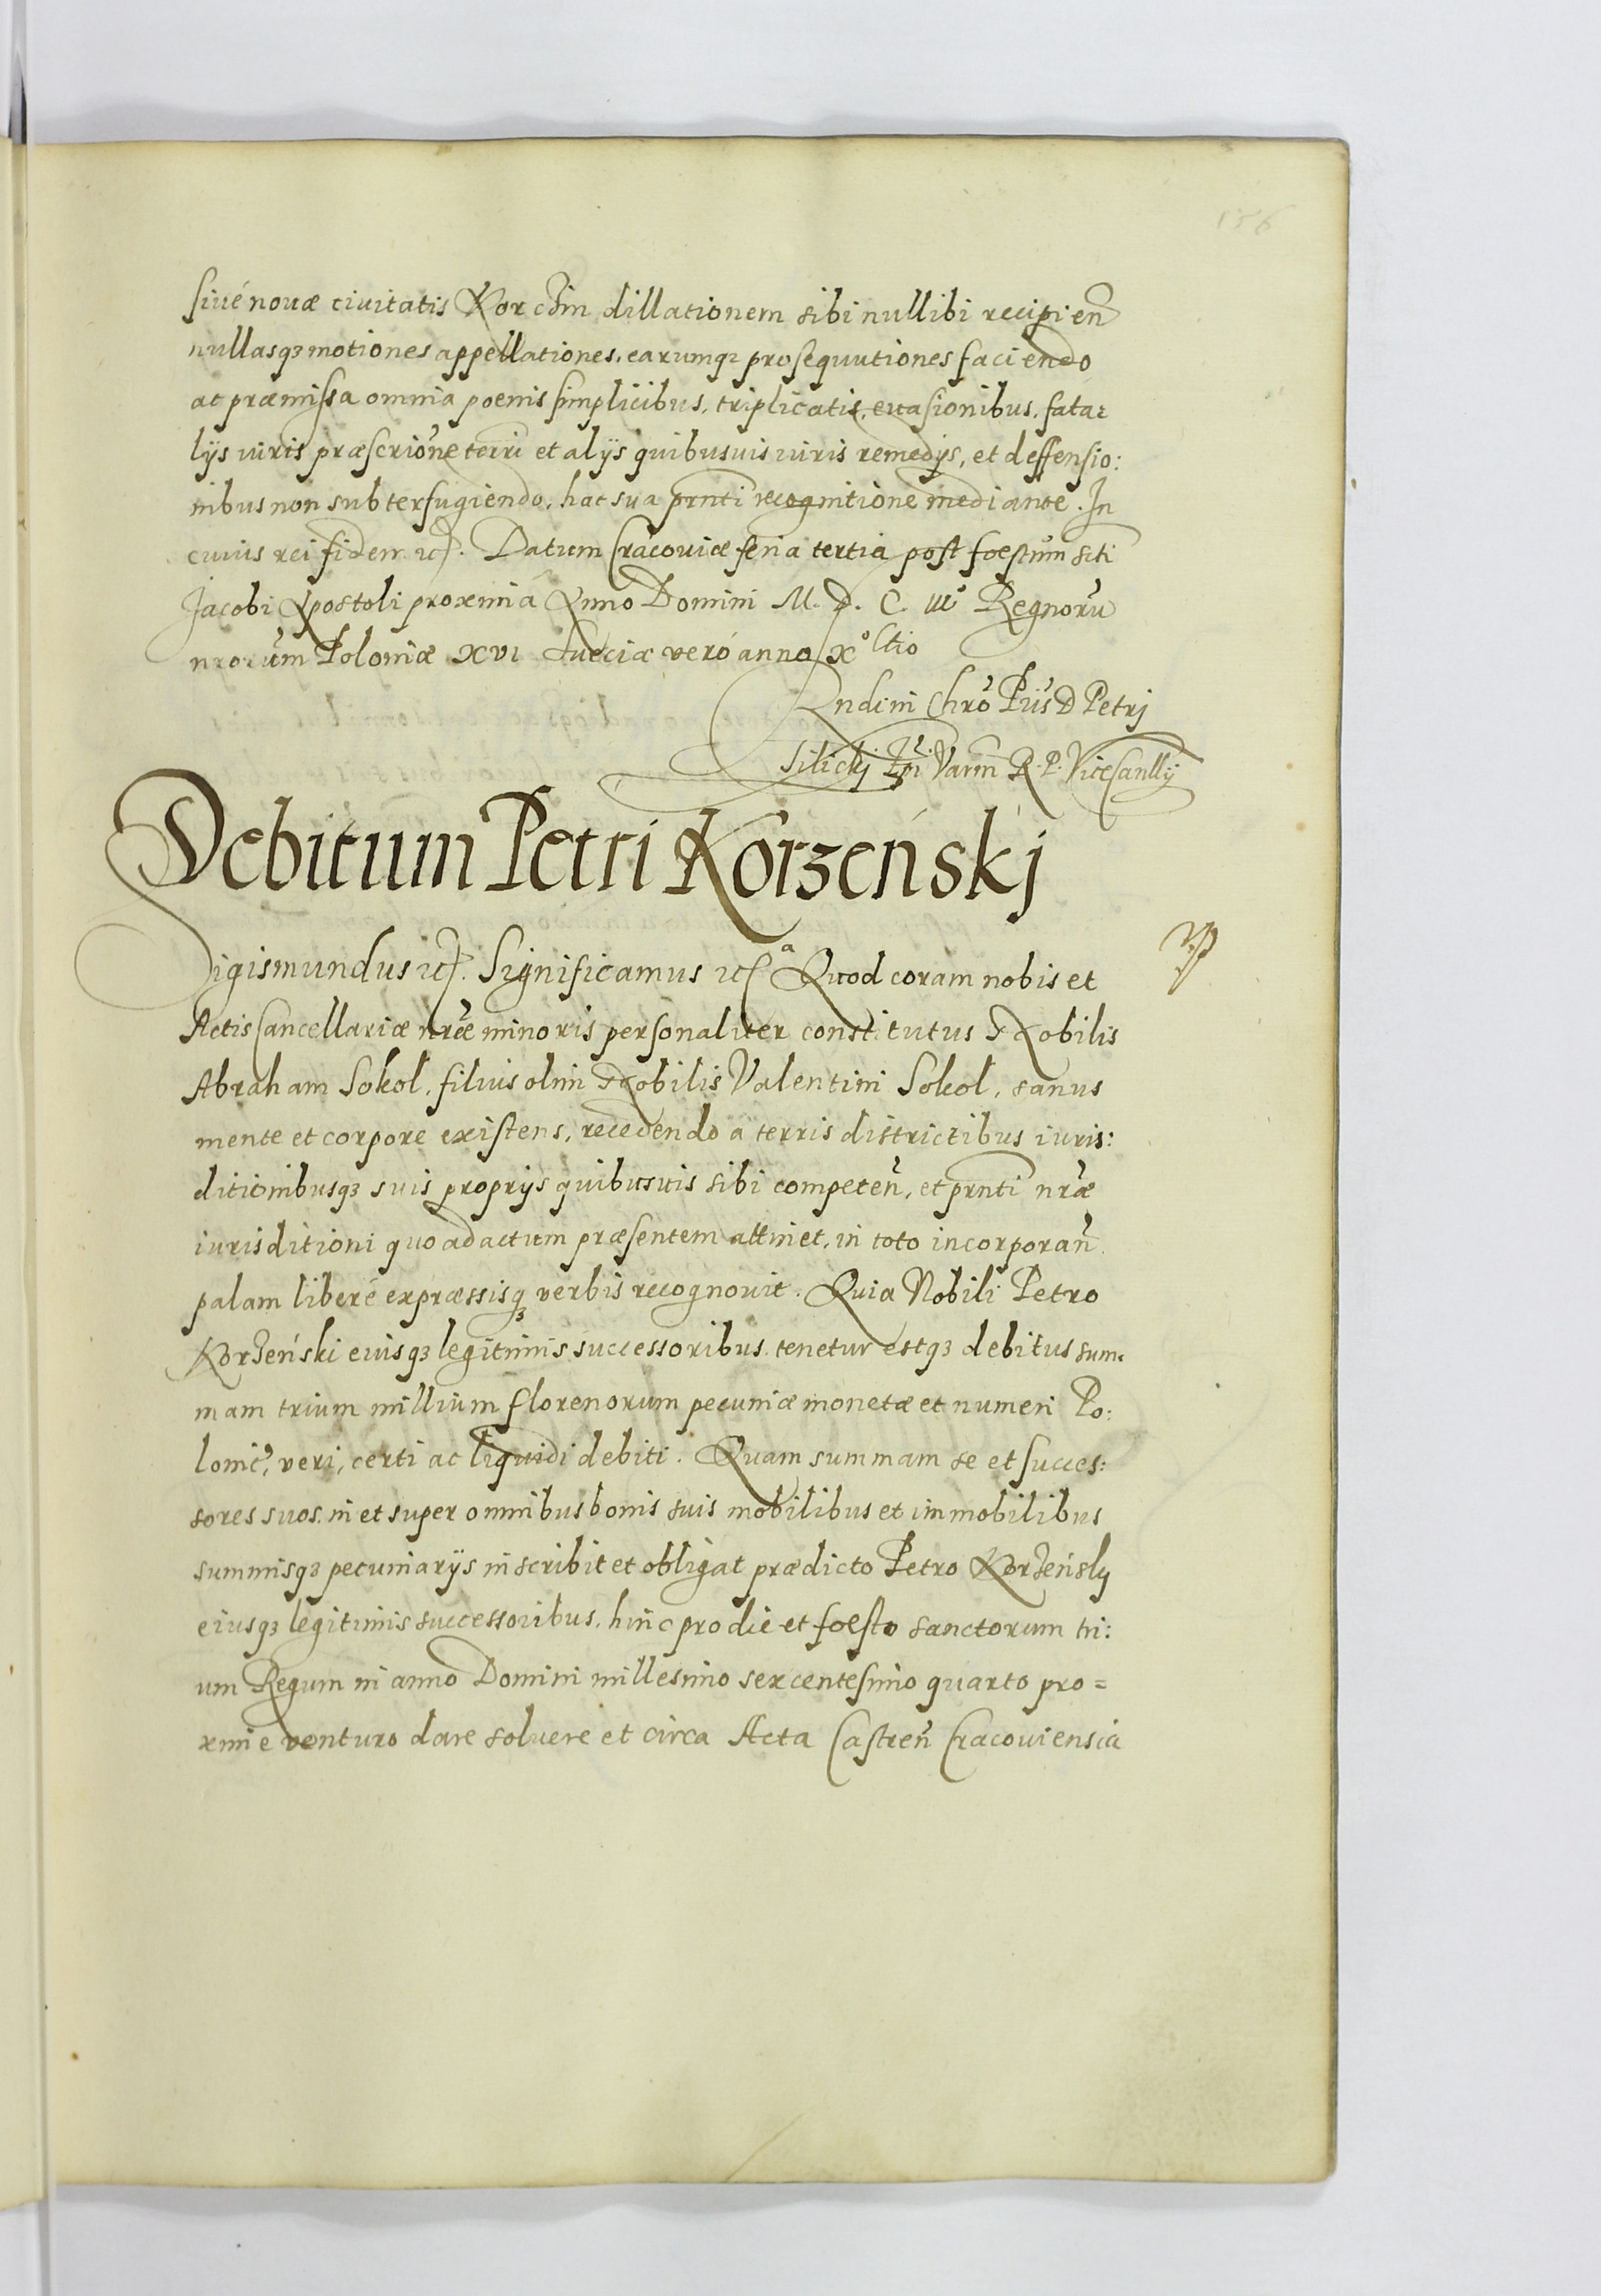 156
siué nouæ ciuitatis Korczin dillationem sibi nullibi recipien̄
nullasqꝫ motiones appellationes, earumqꝫ prosequutiones faciendo
ac præmissa omnia poenis simplicibus, triplicatis, euasionibus, fata-
lijs iuris præscrione terri et alijs quibusuis iuris remedijs, et deffensio:
nibus non subterfugiendo, hac sua prnti recognitione mediante. In
cuius rei fidem etc. Datum Cracouiæ feria tertia post foestum scti
Jacobi Apostoli proxima Anno Domini M. D. C. III Regnorū
nrorum Poloniæ XVI Sueciæ veró anno X°
Rndi in Chrō Pris D Petri
Tilicki Epi Varm R. P. ViceCanllij
Debitum Petri Korzeńskj
Sigismundus etc. Significamus etc.ª Quod coram nobis et
Actis Cancellariæ nræ minoris personaliter constitutus Nobilis
Abraham Sokol, filius olim Nobilis Valentini Sokol, sanus
mente et corpore existens, recedendo á terris districtibus iuris:
ditionibusqꝫ suis proprijs quibusuis sibi competeñ, et prnti nræ
iurisditioni quo ad actum præsentem attinet, in toto incorporañ
palam liberé expræssisqꝫ verbis recognouit. Quia Nobili Petro
Korzeński eiusqꝫ legitimis successoribus tenetur estqꝫ debitus sum-
mam trium millium florenorum pecuniæ monetæ et numeri Po:
lonic, veri, certi ac liquidi debiti. Quam summam se et succes:
sores suos, in et super omnibus bonis suis mobilibus et immobilibus
summisqꝫ pecuniarijs inscribit et obligat prædicto Petro Korzeńsky
eiusqꝫ legitimis successoribus, hinc pro die et foesto sanctorum tri:
um Regum in anno Domini millesimo sexcentesimo quarto pro=
xime venturo dare soluere et circa Acta Castreñ Cracouiensia